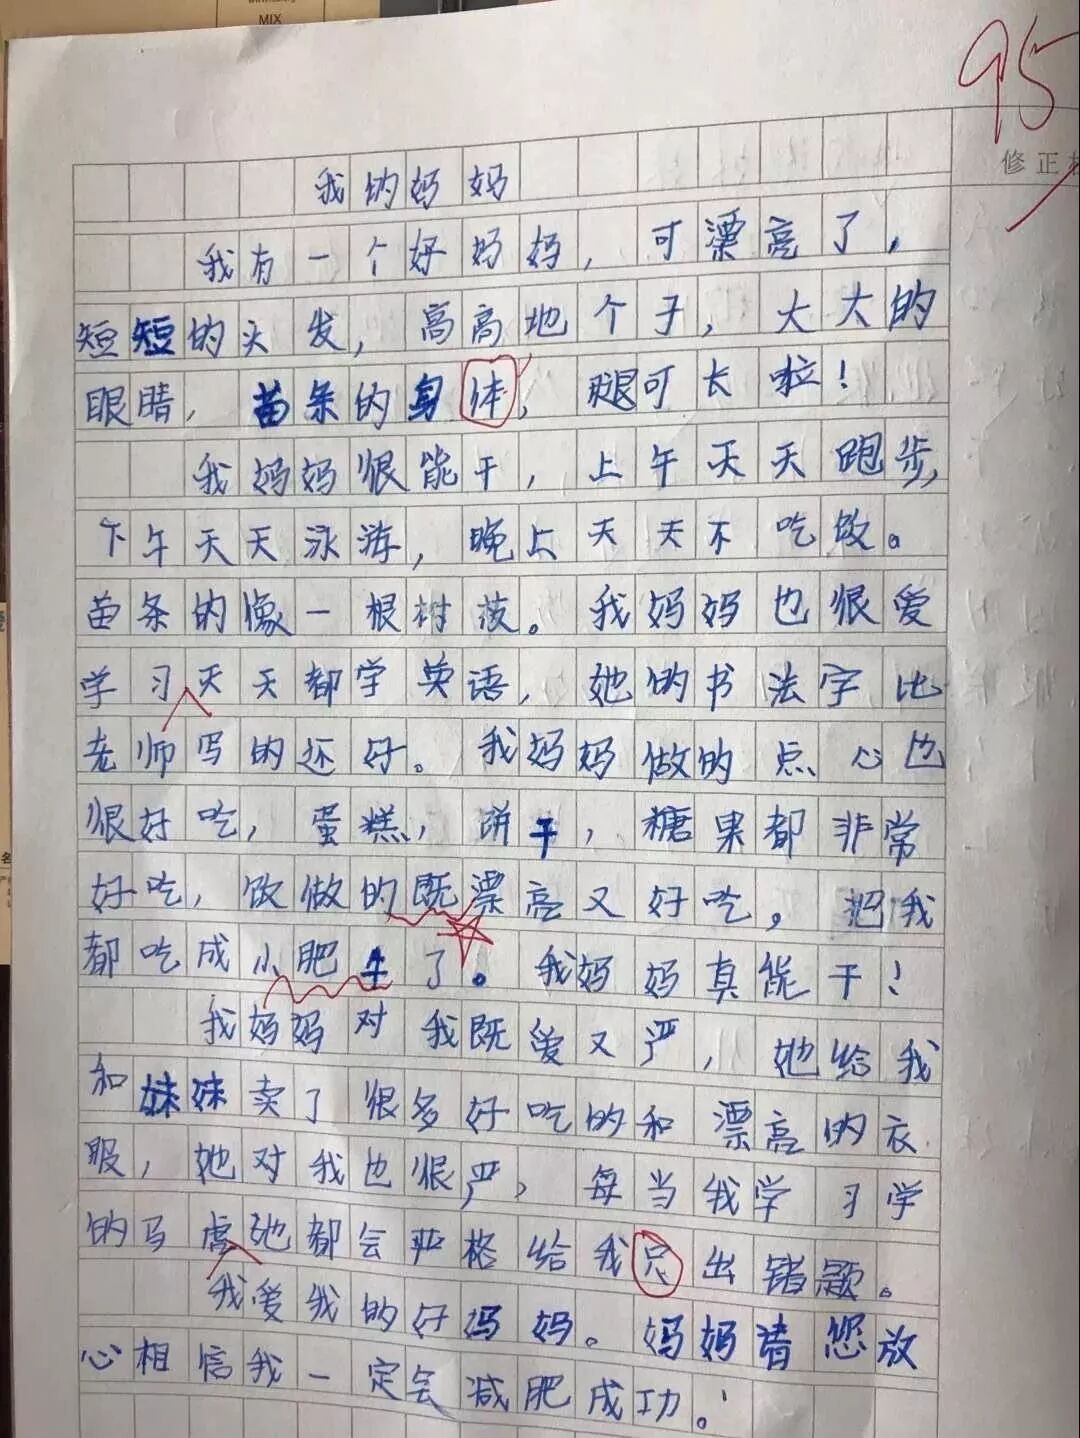 MIX
95
修正
我的妈妈
我有一个好妈妈，可漂亮了，
短短的头发，高高地个子，大大的
眼睛，苗条的身体，腿可长啦！
我妈妈很能干，上午天天跑步，
下午天天泳游，晚上天天不吃饭。
苗条的像一根树枝。我妈妈也很爱
学习天天都学英语，她的书法字比
老师写的还好。我妈妈做的点心也
很好吃，蛋糕，饼干，糖果都非常
好吃，饭做的既漂亮又好吃，把我
都吃成小肥牛了。我妈妈真能干！
我妈妈对我既爱又严，她给我
和妹妹卖了很多好吃的和漂亮的衣
服，她对我也很严，每当我学习学
的马虎她都会严格给我总出错题。
我爱我的好妈妈。妈妈请您放
心相信我一定会减肥成功。！